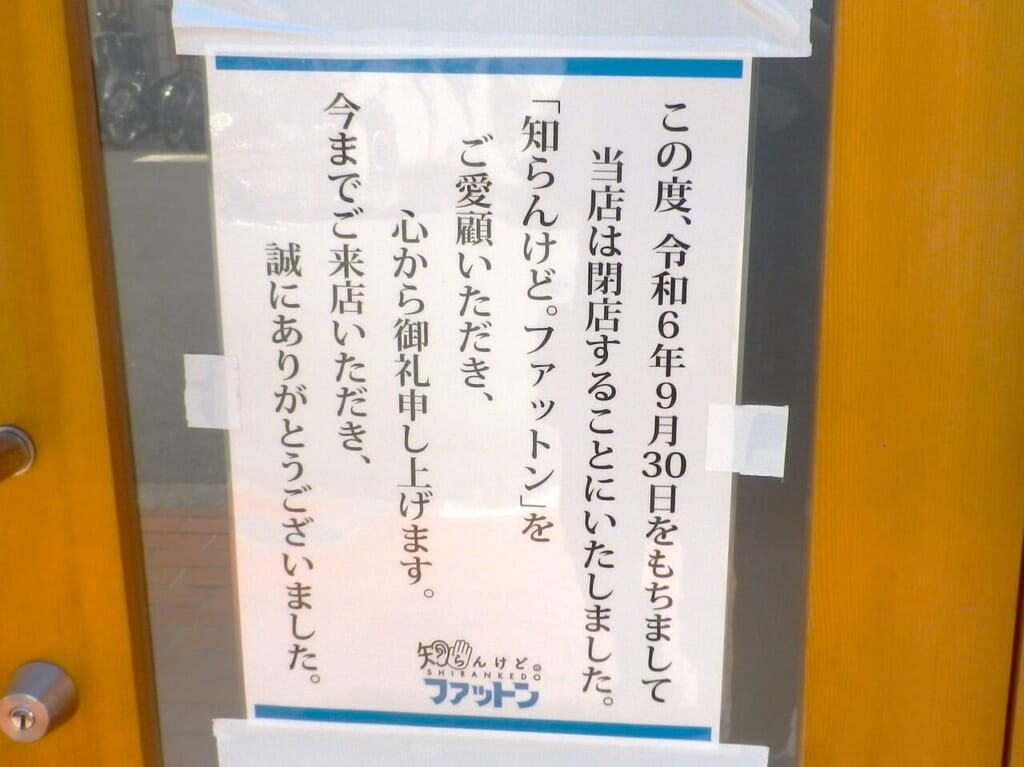 この度、令和6年9月30日をもちまして
当店は閉店することにいたしました。
「知らんけど。ファットン」を
ご愛顧いただき、
心から御礼申し上げます。
今までご来店いただき、
誠にありがとうございました。
知らんけど。
SHIRANKEDO
ファットン